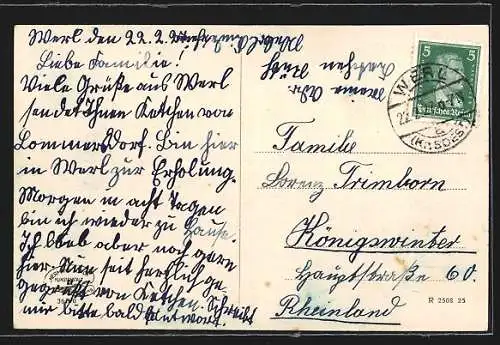 Werl den 22.2.
Liebe Familie!
Viele Grüße aus Werl
sendet Ihnen Ketchen von
Lommersdorf. Bin hier
in Werl zur Erholung.
Morgen in acht Tagen
bin ich wieder zu Hause.
Ich bleb aber noch gare
hier. Nun seit herzlich ge-
gegrüßt von Ketchen. Schreibt
mir bitte bald Antwort.
Meine Adr.
Ketchen
5 5
Deutsches Reich
WERL
(KR. SOEST)
Familie
Lorenz Trimborn
Königswinter
Hauptstraße 60.
Rheinland
R 2508 25